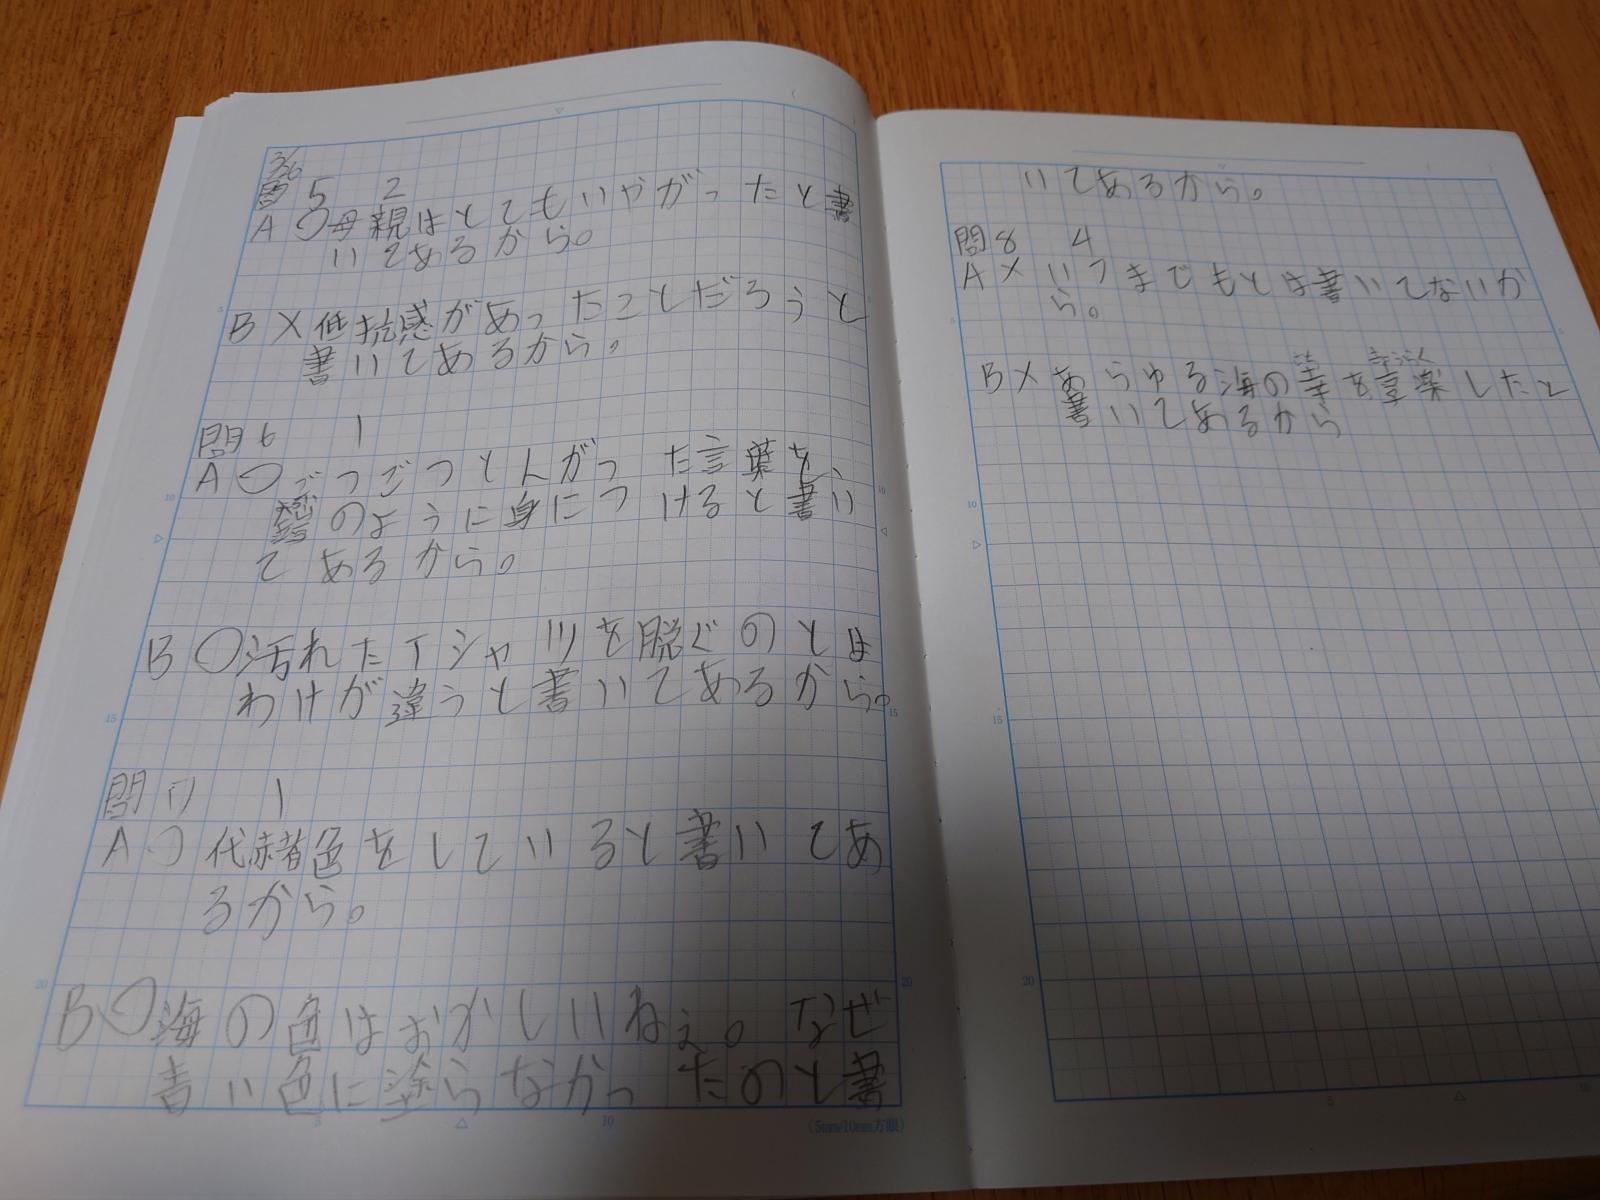 3/26
問5 2
A ○母親はとてもいやがったと書
いてあるから。
B ×低抗感があったことだろうと
書いてあるから。
問6 1
A ○ごつごつとんがった言葉を、
鎧のように身につけると書い
てあるから。
B ○汚れたTシャツを脱ぐのとは
わけが違うと書いてあるから。
問7 1
A ○代赭色をしていると書いてあ
るから。
B ○海の色はおかしいねぇ。なぜ
青い色に塗らなかったのと書
いてあるから。
問8 4
A × いつまでもとは書いてないか
ら。
B × あらゆる海の幸を享楽したと
書いてあるから
5
10
15
20
5
10
(5mm/10mm方眼)
5
10
15
20
5